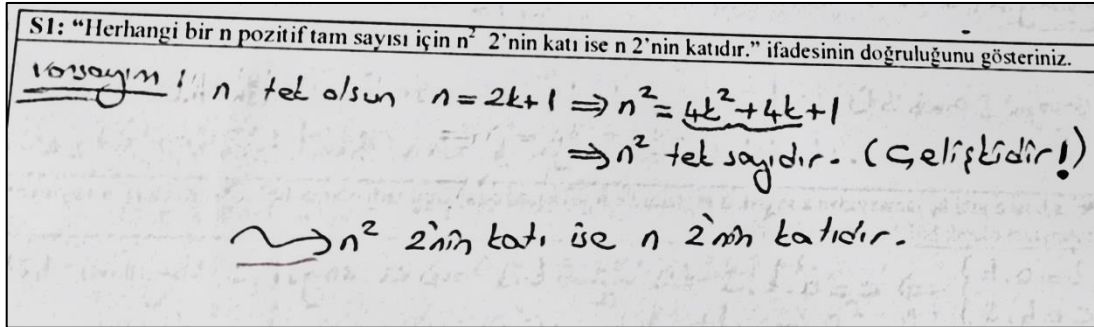 S1: “Herhangi bir n pozitif tam sayısı için n² 2’nin katı ise n 2’nin katıdır.” ifadesinin doğruluğunu gösteriniz.
Varsayım : n tek olsun n = 2k+1 ⇒ n² = 4k²+4k+1
⇒ n² tek sayıdır. (Çelişkidir!)
⟿ n² 2'nin katı ise n 2'nin katıdır.